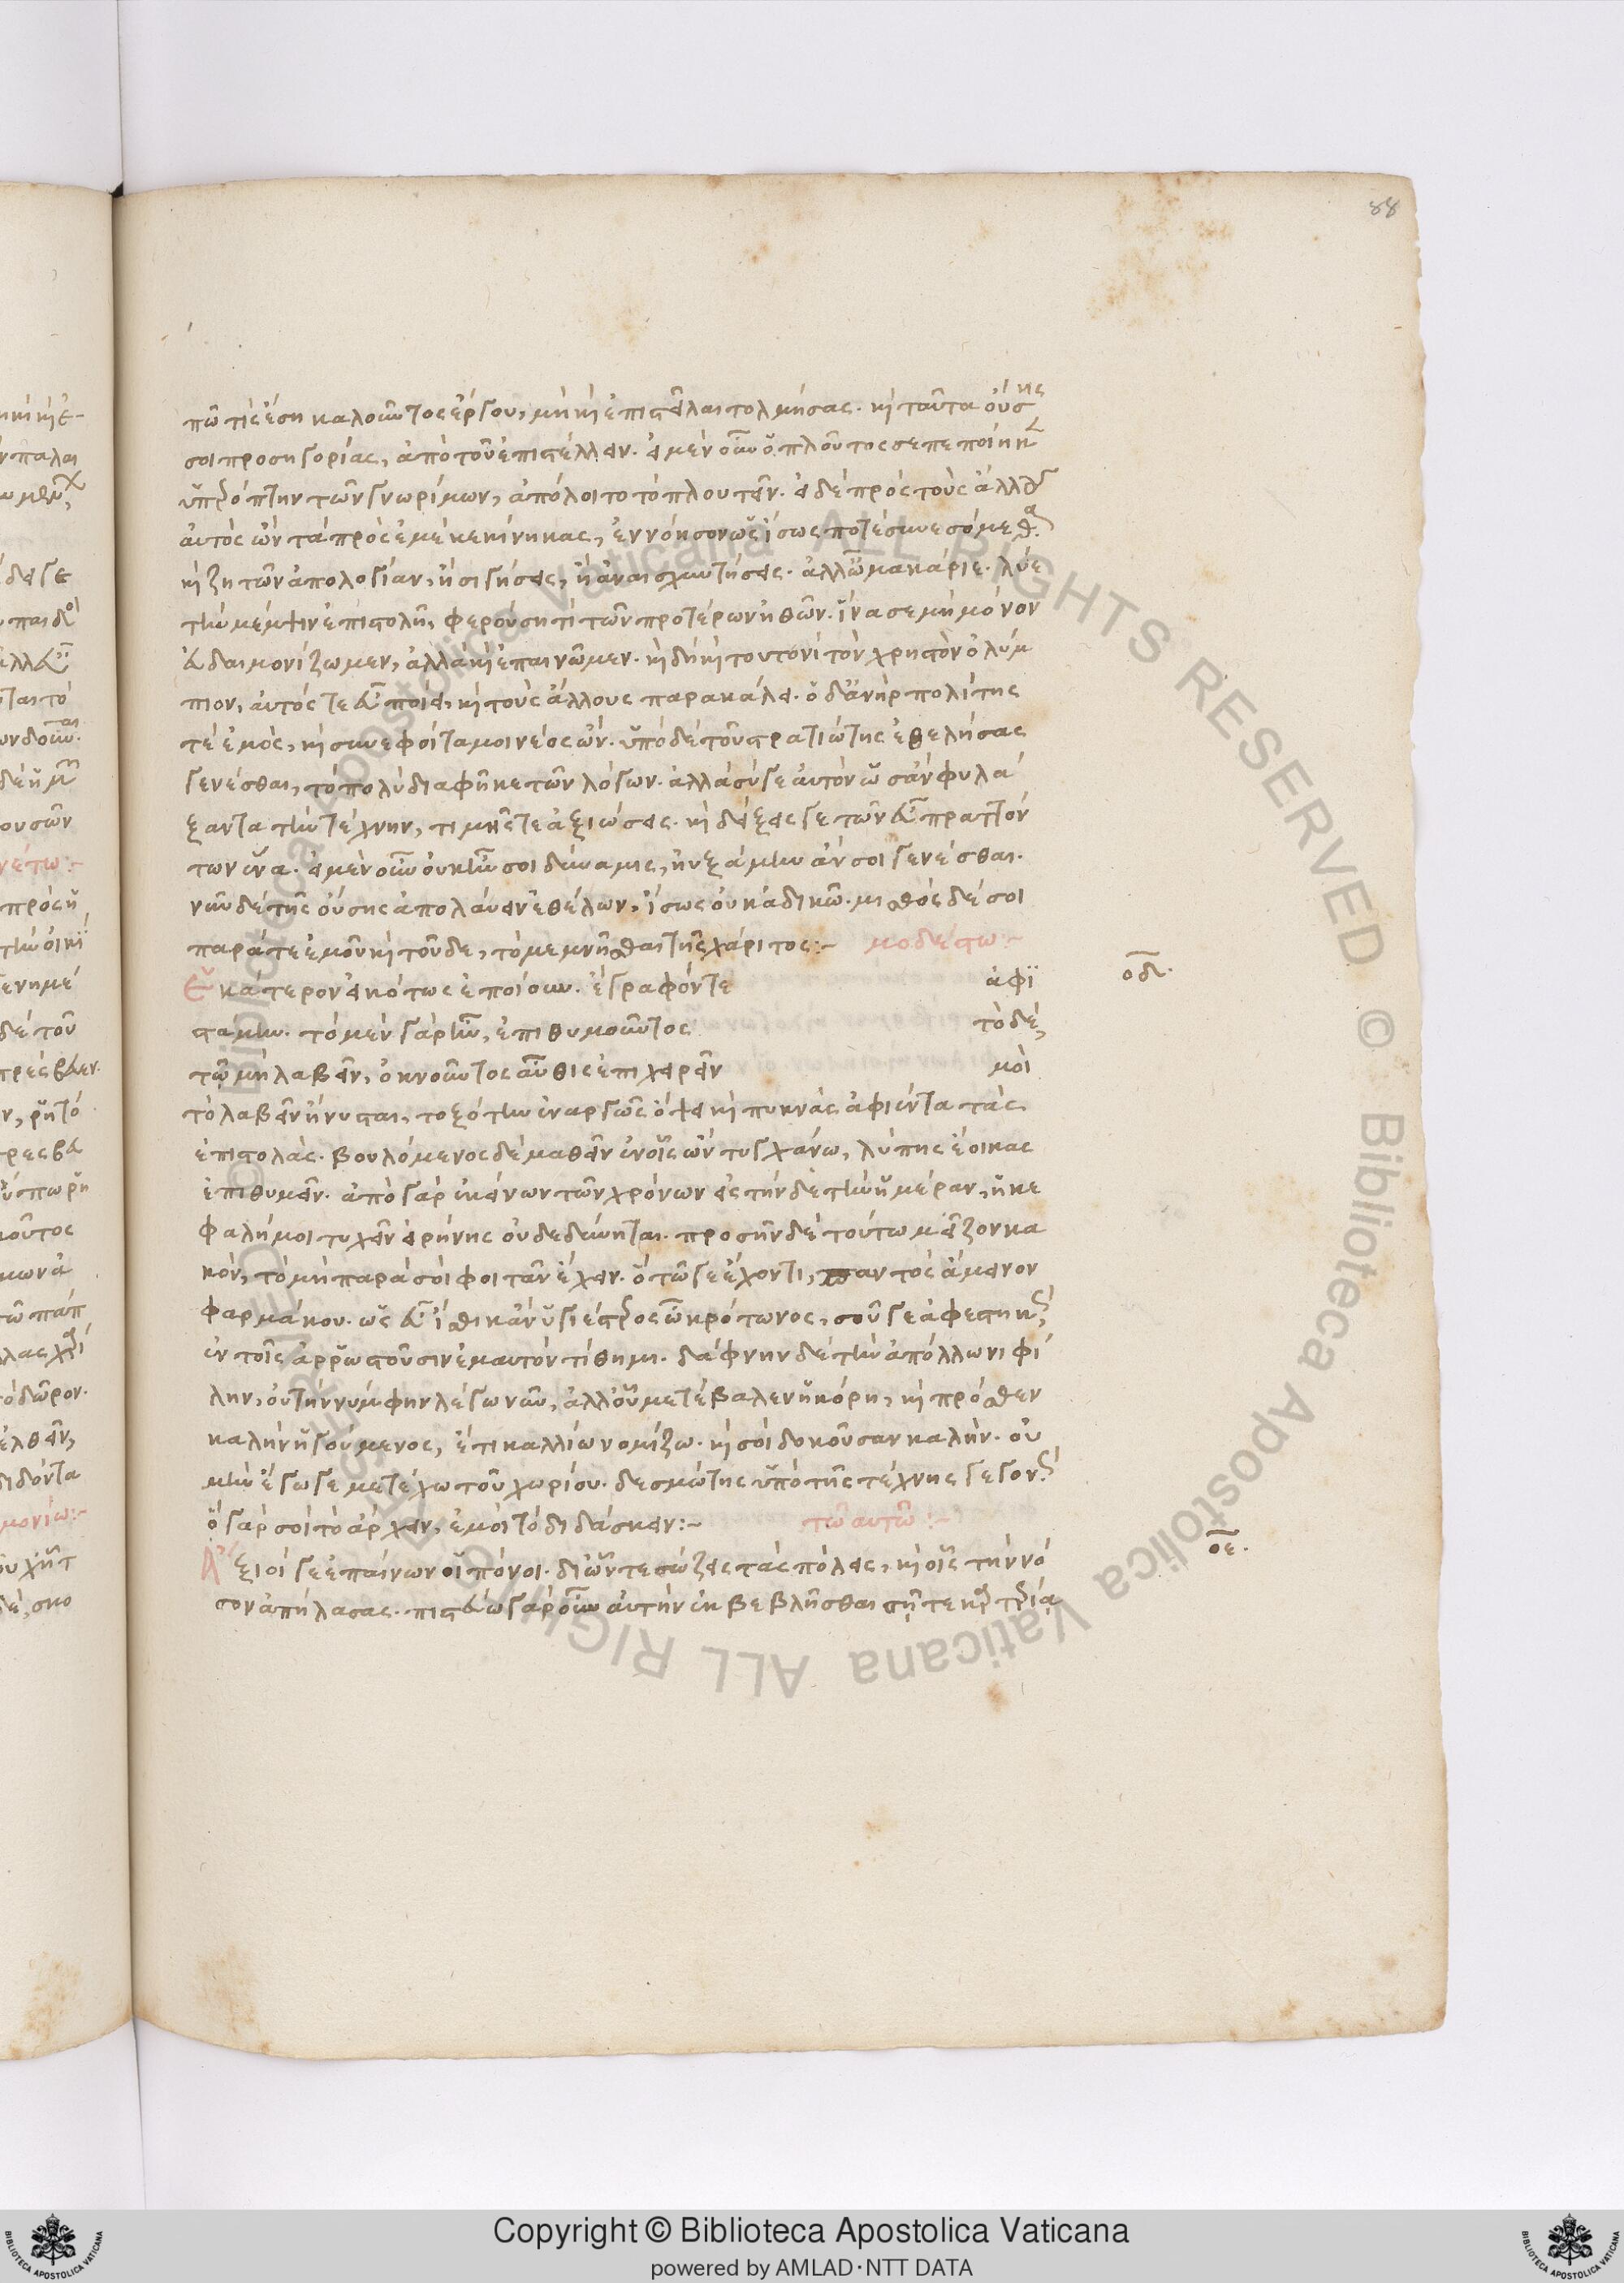 88
πῶ τίς ἔση καλοῦντος ἔργου, μὴ κ̀ ἐπιστεῖλαι τολμήσας. κ̀ ταῦτα οὔσης
σοι προσηγορίας, ἀπὸ τοῦ ἐπιστέλλειν. εἰ μὲν οὖν ὁ πλοῦτος σε πεποίηκ
ὑπερόπτην τῶν γνωρίμων, ἀπόλοιτο τὸ πλουτεῖν. εἰ δὲ πρὸς τοὺς ἄλλους
αὐτὸς ὢν τὰ πρὸς ἐμὲ κεκίνηκας, ἐννόησον ὡς ἴσως ποτὲ συνεσόμεθα.
κ̀ ζητῶν ἀπολογίαν, ἢ σιγήσεις, ἢ ἀναισχυντήσεις. ἀλλ' ὦ μακάριε. λύε
τὴν μέμψιν ἐπιστολῇ, φερούσῃ τὶ τῶν προτέρων ἠθῶν. ἵνα σε μὴ μόνον
εὐδαιμονίζωμεν, ἀλλὰ κ̀ ἐπαινῶμεν. κ̀ δὴ κ̀ τουτονὶ τὸν χρηστὸν ὀλύμ
πιον, αὐτός τε εὖ ποίει, κ̀ τοὺς ἄλλους παρακάλει. ὁ δ' ἀνὴρ πολίτης
τὲ ἐμὸς, κ̀ συνεφοίτα μοι νέος ὤν. ὑπὸ δὲ τοῦ στρατιώτης ἐθελήσας
γενέσθαι, τὸ πολὺ διαφῆκε τῶν λόγων. ἀλλὰ σύ γε αὐτὸν ὡσὰν φυλά
ξαντα τὴν τέχνην, τιμῆς τε ἀξιώσεις. κ̀ δείξεις γε τῶν εὖ πραττόν
των ἕνα. εἰ μὲν οὖν οὐκ ἦν σοι δύναμις, ηὐξάμην ἄν σοι γενέσθαι.
νῦν δὲ τῆς οὔσης ἀπολαύειν ἐθέλων, ἴσως οὐκ ἀδικῶ. μισθὸς δέ σοι
παρά τε ἐμοῦ κ̀ τοῦδε, τὸ μεμνῆσθαι τῆς χάριτος:~ μοδέστω:~
Ἑκάτερον εἰκότως ἐποίουν. ἔγραφόν τε ἀφϊ
στάμην. τὸ μὲν γὰρ ἦν, ἐπιθυμοῦντος τὸ δὲ,
τῶ μὴ λαβεῖν, ὀκνοῦντος αὖθις ἐπιχειρεῖν μοὶ
τὸ λαβεῖν ἤνυσται, τοξότην ἐναργῶς ὄψει κ̀ πυκνὰς ἀφιέντα τὰς
ἐπιστολάς. βουλόμενος δὲ μαθεῖν ἐν οἷς ὢν τυγχάνω, λύπης ἔοικας
ἐπιθυμεῖν. ἀπὸ γὰρ ἐκείνων τῶν χρόνων εἰς τήνδε τὴν ἡμέραν, ἡ κε
φαλή μοι τυχεῖν εἰρήνης οὐ δεδύνηται. προσῆν δὲ τούτω μεῖζον κα
κὸν, τὸ μὴ παρὰ σοὶ φοιτᾶν ἔχειν. ὅ τῶ γε ἔχοντι, παντὸς ἄμεινον
φαρμάκου. ὡς εὖ ἴσθι κἂν ὑγιέστερος ὦ κρότωνος, σοῦ γε ἀφεστηκὼς,
ἐν τοῖς ἀρρωστοῦσιν ἐμαυτὸν τίθημι. δάφνην δὲ τὴν ἀπόλλωνι φί
λην, οὐ τὴν νύμφην λέγω νῦν, ἀλλ' οὗ μετέβαλεν ἡ κόρη, κ̀ πρόσθεν
καλὴν ἡγούμενος, ἔτι καλλίω νομίζω. κ̀ σοὶ δοκοῦσαν καλήν. οὐ
μὴν ἔγωγε μετέχω τοῦ χωρίου. δεσμώτης ὑπὸ τῆς τέχνης γεγονώς.
ὃ γὰρ σοὶ τὸ ἄρχειν, ἐμοὶ τὸ διδάσκειν:~ τῶ αὐτῶ:~
Ἄξιοί γε ἐπαίνων οἱ πόνοι. δι' ὧν τε σώζεις τὰς πόλεις, κ̀ οἷς τὴν νό
σον ἀπήλασας. πιστεύω γὰρ οὖν αὐτὴν ἐκβεβλῆσθαι σῇ τε καρτερίᾳ
οδ.
οε.